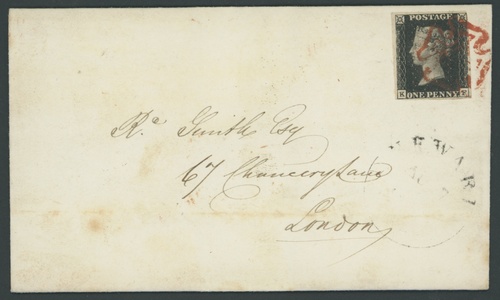 POSTAGE
ONE PENNY
K E
Rᵈ Smith Esq
67 Chancery Lane
London